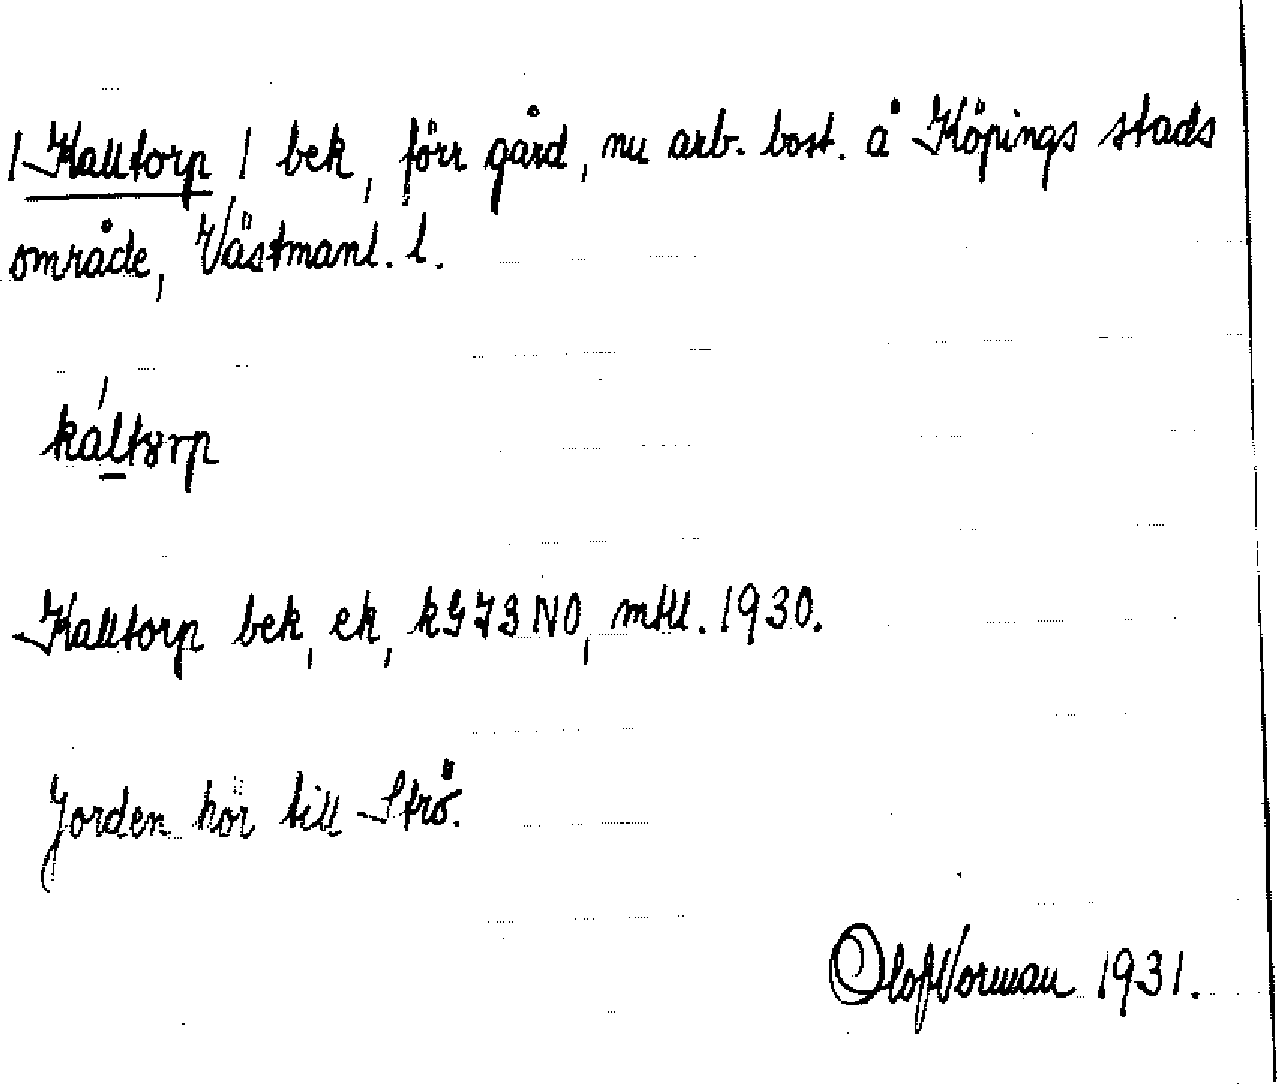 /Kalltorp/ bek, förr gård, nu arb. bost. å Köpings stads
område, Västmanl. l.
káltorp
Kalltorp bek, ek, kG73NO, mtll. 1930.
Jorden hör till Strö.
Olof Norman 1931.